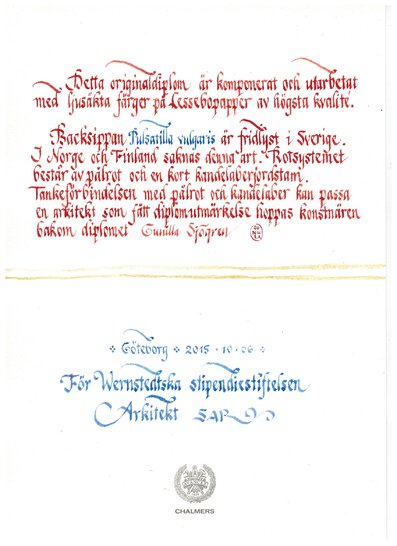 Detta originaldiplom är komponerat och utarbetat
med ljusäkta färger på Lessebopapper av högsta kvalité.
Backsippan Pulsatilla vulgaris är fridlyst i Sverige.
I Norge och Finland saknas denna art. Rotsystemet
består av pålrot och en kort kandelaberjordstam.
Tankeförbindelsen med pålrot och kandelaber kan passa
en arkitekt som fått diplomutmärkelse hoppas konstnären
bakom diplomet Gunilla Sjögren
Göteborg 2015 · 10 · 06
För Wernstedtska stipendiestiftelsen
Arkitekt SAR
CHALMERS